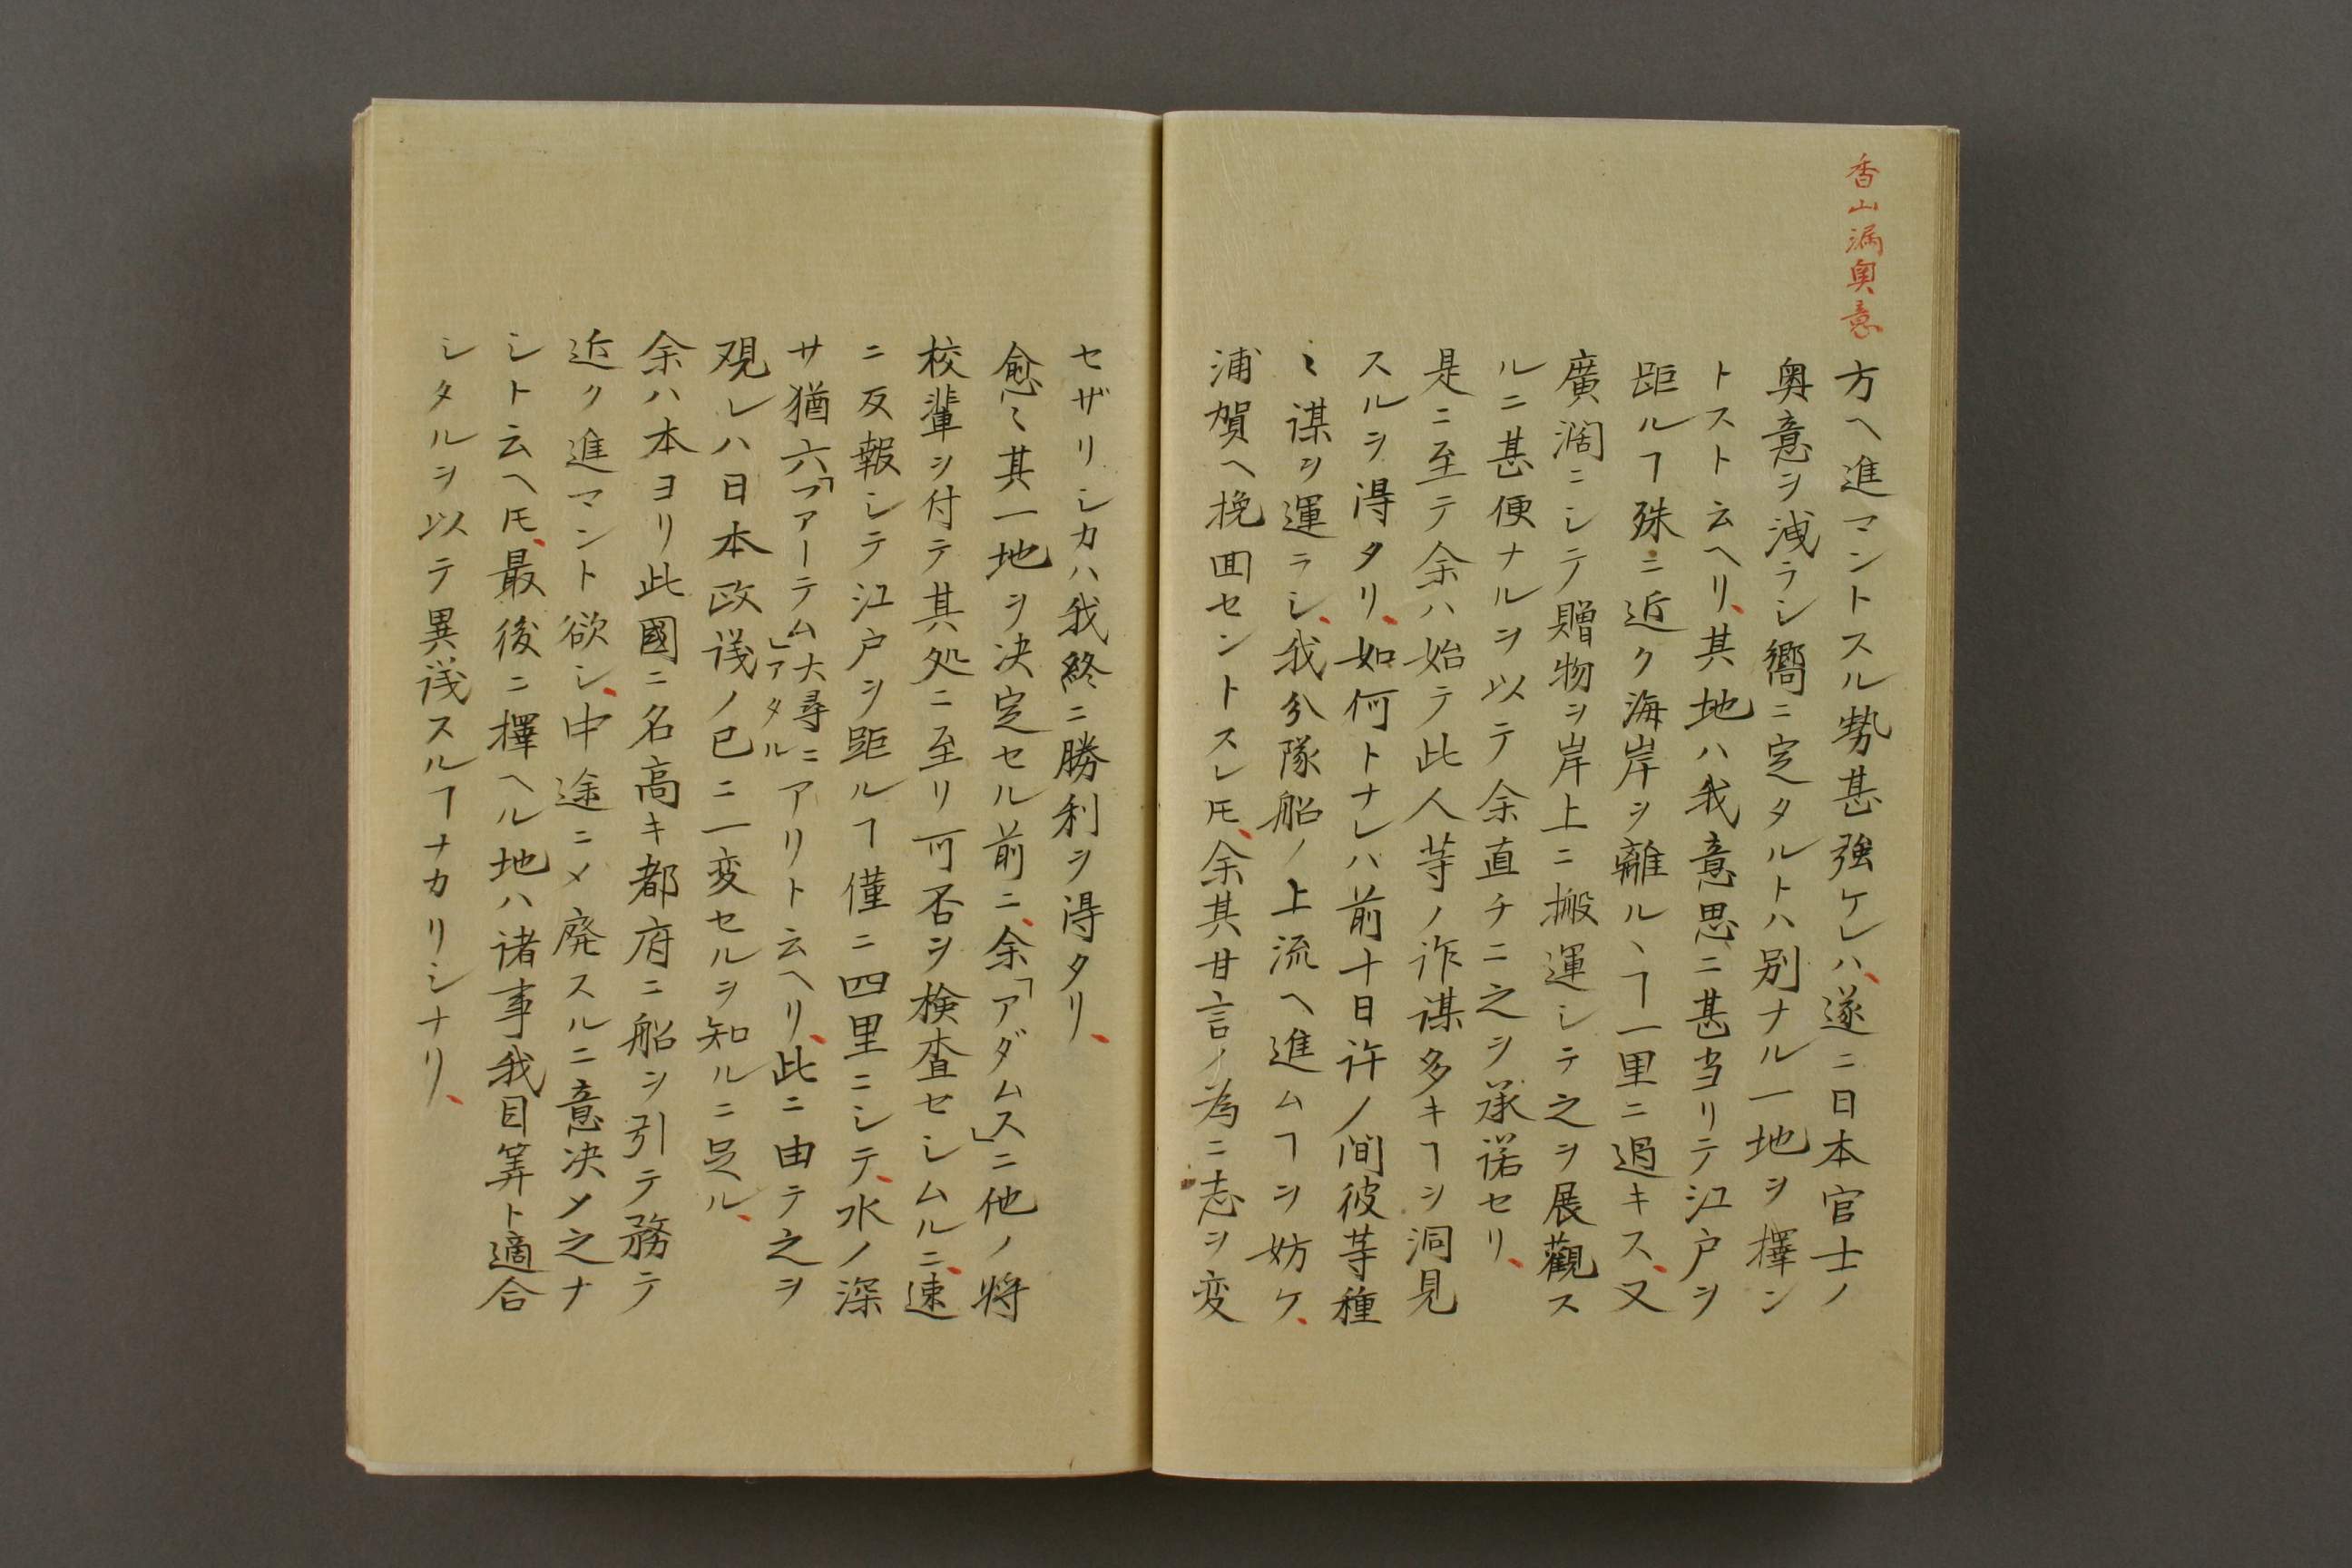 香山漏奥意
方ヘ進マントスル勢甚強ケレハ、遂ニ日本官士ノ
奥意ヲ洩ラシ嚮ニ定タルトハ別ナル一地ヲ擇ン
トスト云ヘリ、其地ハ我意思ニ甚当リテ江戸ヲ
距ルヿ殊ニ近ク海岸ヲ離ルヽヿ一里ニ過キス、又
廣濶ニシテ贈物ヲ岸上ニ搬運シテ之ヲ展觀ス
ルニ甚便ナルヲ以テ余直チニ之ヲ承諾セリ、
是ニ至テ余ハ始テ此人等ノ詐謀多キヿヲ洞見
スルヲ得タリ、如何トナレハ前十日許ノ間彼等種
〻謀ヲ運ラシ、我分隊船ノ上流ヘ進ムヿヲ妨ケ、
浦賀ヘ挽回セントスレ𪜈、余其甘言ノ為ニ志ヲ変
セザリシカハ我終ニ勝利ヲ得タリ、
愈〻其一地ヲ决定セル前ニ、余「アダムス」ニ他ノ将
校輩ヲ付テ其処ニ至リ可否ヲ検査セシムルニ、速
ニ反報シテ江戸ヲ距ルヿ僅ニ四里ニシテ、水ノ深
サ猶六「ファーテム」大尋ニアタルニアリト云ヘリ、此ニ由テ之ヲ
观レハ日本政議ノ已ニ一変セルヲ知ルニ足ル、
余ハ本ヨリ此國ニ名高キ都府ニ船ヲ引テ務テ
近ク進マント欲シ、中途ニメ廃スルニ意决メ之ナ
シト云ヘ𪜈、最後ニ擇ヘル地ハ诸事我目筭ト適合
シタルヲ以テ異議スルヿナカリシナリ、